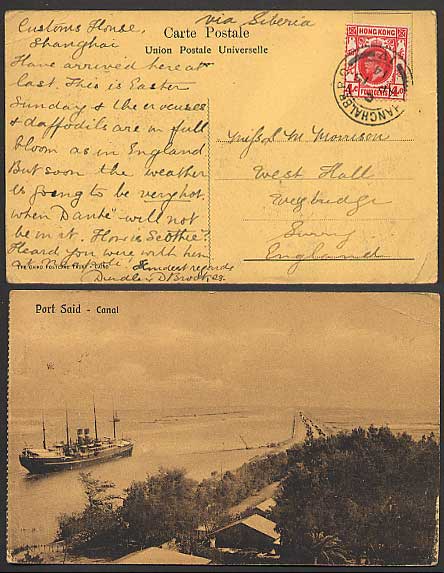 Customs House,
Shanghai
Have arrived here at
last. This is Easter
Sunday & the crocuses
& daffodils are in full
bloom as in England
But soon the weather
is going to be very hot
when Dante will not
be in it. How is Scottie?
Heard you were with him
Kindest regards
THE CAIRO POSTCARD TRUST - CAIRO
via Siberia
Carte Postale
Union Postale Universelle
HONG KONG
Miss M Morrison
West Hall
Weybridge
Surrey
England
Port Said - Canal